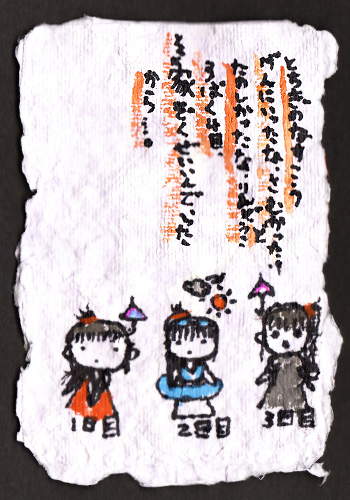 とちぎのなすこう
げんにいったなさむかった!
たのしかったなりんどうこ
3ぱく4日
家ぞくぜいいんでいった
から…。
1日目 2日目 3日目